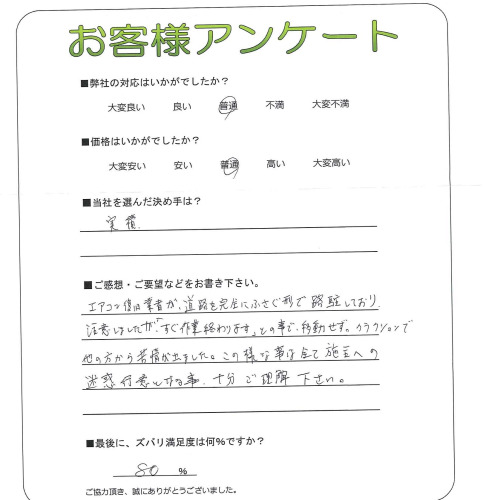 お客様アンケート
■弊社の対応はいかがでしたか？
大変良い 良い 普通 不満 大変不満
■価格はいかがでしたか？
大変安い 安い 普通 高い 大変高い
■当社を選んだ決め手は？
実積
■ご感想・ご要望などをお書き下さい。
エアコン復旧業者が、道路を完全にふさぐ形で路駐しており、
注意しましたが、「すぐ作業終わります」との事で、移動せず。クラクションで
他の方から苦情が出ました。この様な事は全て施主への
迷惑行為とする事、十分ご理解下さい。
■最後に、ズバリ満足度は何%ですか？
80 %
ご協力頂き、誠にありがとうございました。